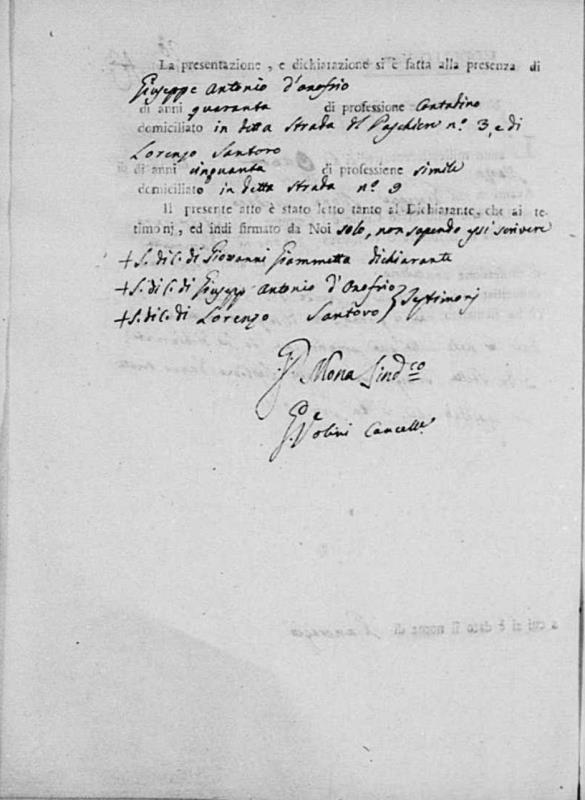 La presentazione, e dichiarazione si è fatta alla presenza di
Giuseppe Antonio d'Onofrio
di anni quaranta di professione Contadino
domiciliato in detta Strada il Paschiere n.º 3, e di
Lorenzo Santoro
di anni cinquanta di professione simile
domiciliato in detta Strada n.º 9
Il presente atto è stato letto tanto al Dichiarante, che ai te-
timonj, ed indi firmato da Noi solo, non sapendo essi scrivere
+ S. di C. di Giovanni Giammetta dichiarante
+ S. di C. di Giusepp Antonio d'Onofrio
+ S. di C. di Lorenzo Santoro } Testimonj
Mona Sind.co
Volini Cancelle.e
a cui si è dato il nome di